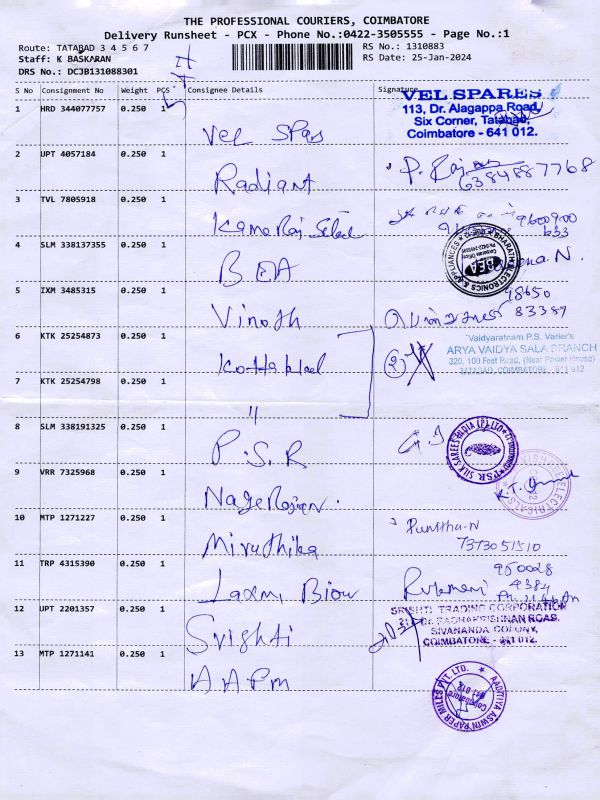 THE PROFESSIONAL COURIERS, COIMBATORE
Delivery Runsheet - PCX - Phone No.:0422-3505555 - Page No.:1
Route: TATABAD 3 4 5 6 7
RS No.: 1310883
Staff: K BASKARAN
RS Date: 25-Jan-2024
DRS No.: DCJB131088301
S No Consignment No Weight PCS Consignee Details Signature
1 HRD 344077757 0.250 1 Vel Spas
VEL SPARES
113, Dr. Alagappa Road,
Six Corner, Tatabad,
Coimbatore - 641 012.
2 UPT 4057184 0.250 1 Radiant P. Raj
6384887768
3 TVL 7805918 0.250 1 Kamaraj
9600900
633
4 SLM 338137355 0.250 1 BEA
BHARATH ELECTRONICS & APPLIANCES
BEA
5 IXM 3485315 0.250 1 Vinoth
98650
83389
6 KTK 25254873 0.250 1 Kottakkal (2)
'Vaidyaratnam P.S. Varier's
ARYA VAIDYA SALA BRANCH
320, 100 Feet Road, (Near Power House)
TATABAD, COIMBATORE - 641 012
7 KTK 25254798 0.250 1 "
8 SLM 338191325 0.250 1 P.S.R
PSR SILK SAREES INDIA (P) LTD
9 VRR 7325968 0.250 1 Nagarajan.
ELECTRICALS
10 MTP 1271227 0.250 1 Miruthika
7373051510
11 TRP 4315390 0.250 1 Laxmi Rukmani
950028
4384
12 UPT 2201357 0.250 1 Srishti
SRISHTI TRADING CORPORATION
RADHAKRISHNAN ROAD,
SIVANANDA COLONY,
COIMBATORE - 641 012.
13 MTP 1271141 0.250 1 AAPM
AADITIYA ASWIN PAPER MILLS PVT. LTD.
Coimbatore
641 012